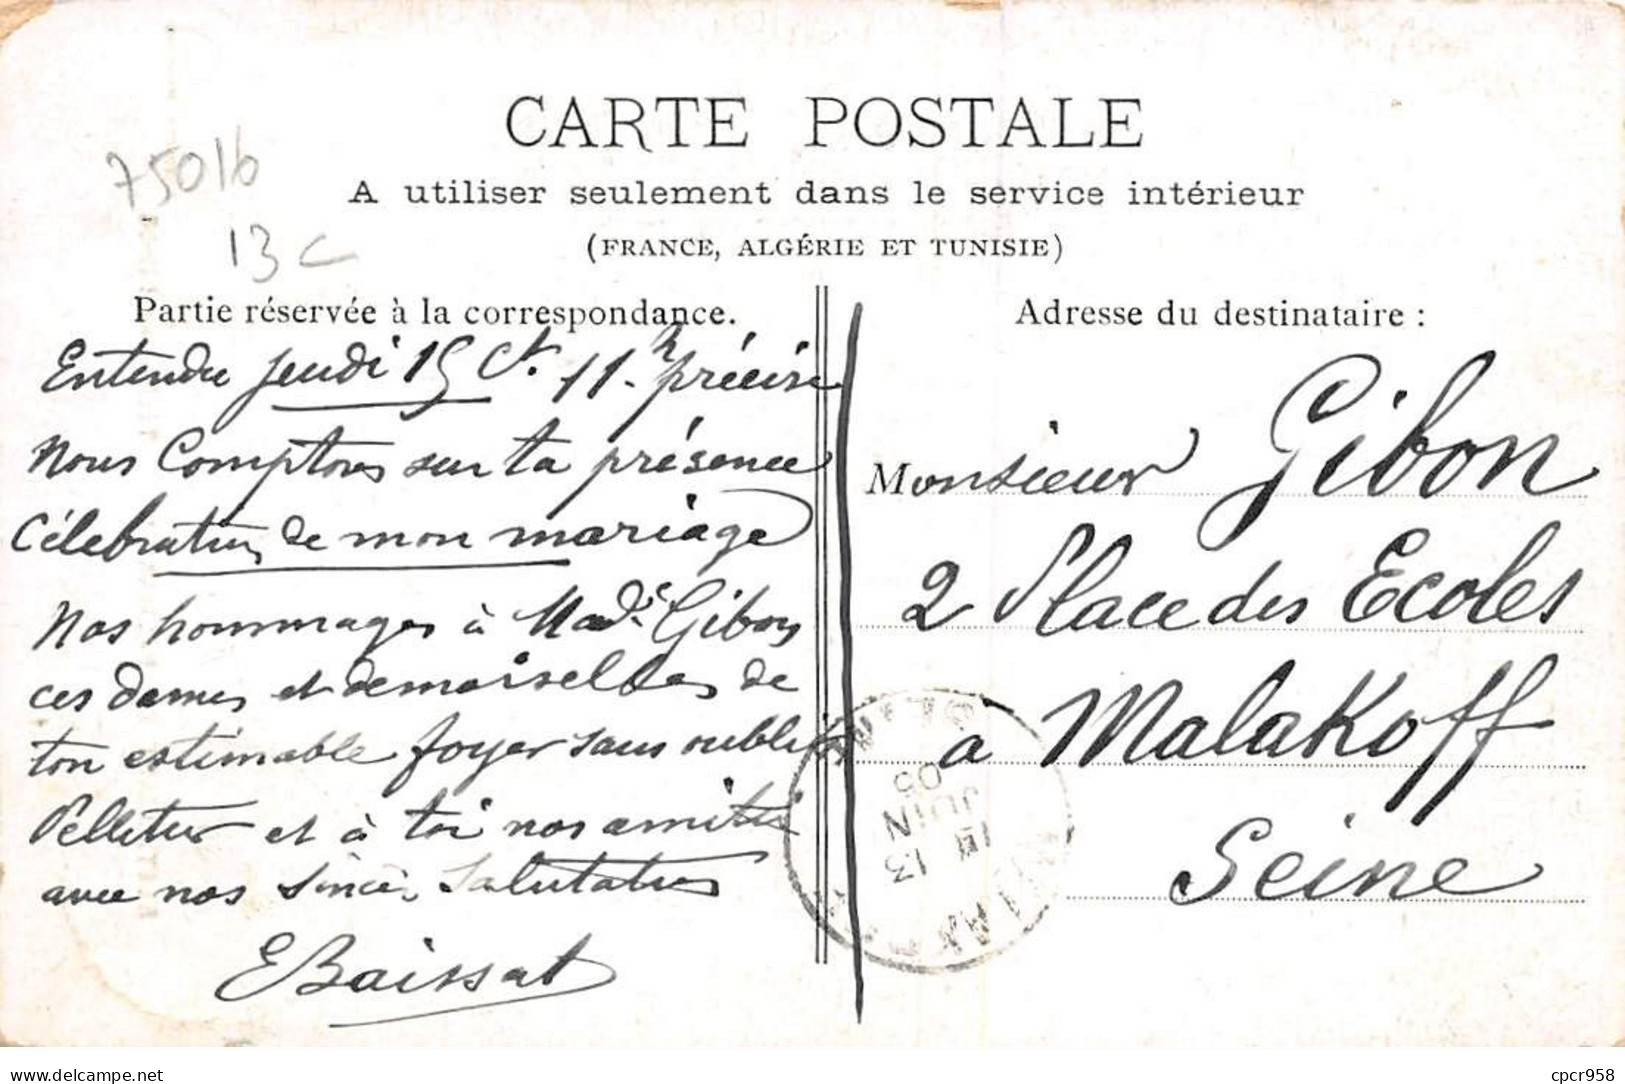 CARTE POSTALE
75016
A utiliser seulement dans le service intérieur
13 c
(FRANCE, ALGÉRIE ET TUNISIE)
Partie réservée à la correspondance.
Entendu jeudi 15 Ct. 11h précise
Nous Comptons sur ta présence
Célébration de mon mariage
Nos hommages à Made Gibon
ces dames et demoiselles de
ton estimable foyer sans oublier
Pelletier et à toi nos amitiés
avec nos sincè. Salutations
EBaissat
Adresse du destinataire :
Monsieur Gibon
2 Place des Ecoles
a Malakoff
Seine
13
JUIN
05
delcampe.net
cpcr958